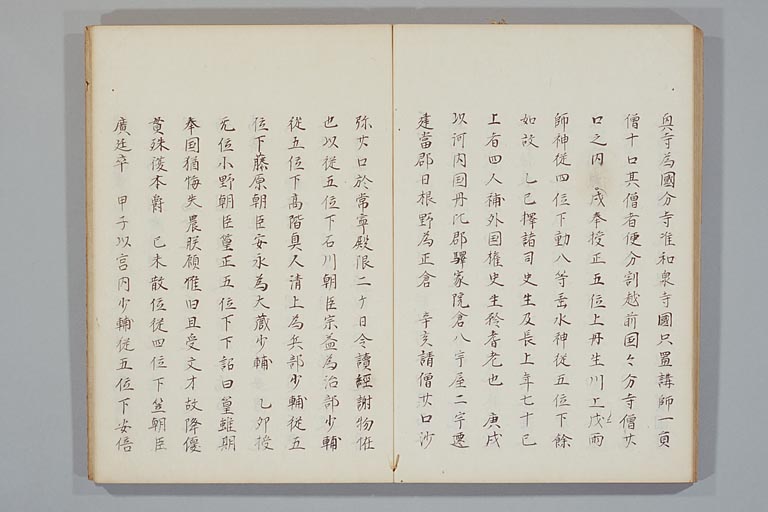 奥寺為國分寺准和泉寺國只置講師一員
僧十口其僧者便分割越前国々分寺僧廿
口之内　戌奉授正五位上丹生川上戌雨
師神従四位下勳八等垂水神従五位下餘
如故　乙巳擇諸司史生及長上年七十已
上者四人補外国権史生矜耆老也　庚戌
以河内国丹比郡驛家院倉八宇屋二宇遷
建當郡日根野為正倉　辛亥請僧廿口沙
弥廿口於常寧殿限二ケ日令讀經謝物恠
也以従五位下石川朝臣宗益為治部少輔
従五位下高階真人清上為兵部少輔従五
位下藤原朝臣安永為大蔵少輔　乙夘授
无位小野朝臣篁正五位下下詔曰篁雖期
奉国猶悔失晨朕顧惟旧且受文才故降優
貴殊復本爵　己未散位従四位下笠朝臣
廣廷卒　甲子以宮内少輔従五位下安倍